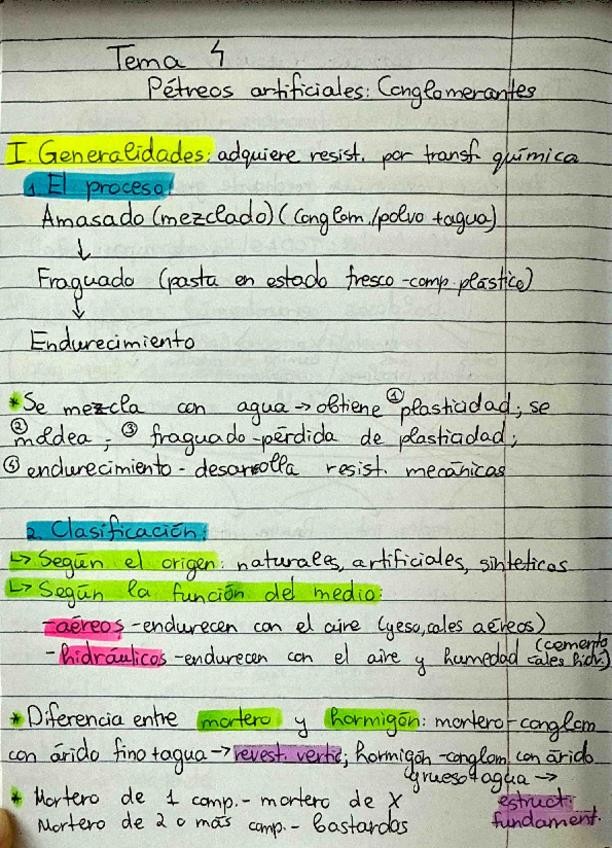 Tema 4
Pétreos artificiales: Conglomerantes
I. Generalidades: adquiere resist. por transf. química
1. El proceso:
Amasado (mezclado) (conglom./polvo + agua)
↓
Fraguado (pasta en estado fresco - comp. plástico)
↓
Endurecimiento
*Se mezcla con agua → obtiene ① plasticidad; se
② moldea; ③ fraguado - pérdida de plasticidad;
④ endurecimiento - desarrolla resist. mecánicas
2. Clasificación:
↳ Según el origen: naturales, artificiales, sinteticos
↳ Según la función del medio:
- aéreos - endurecen con el aire (yeso, cales aéreos)
- hidráulicos - endurecen con el aire y humedad (cemento
cales hidr.)
* Diferencia entre mortero y hormigón: mortero - conglom
con árido fino + agua → revest. vertic; hormigón - conglom. con árido
grueso + agua →
estruct.
fundament.
* Mortero de 1 comp. - mortero de X
Mortero de 2 o más comp. - bastardos